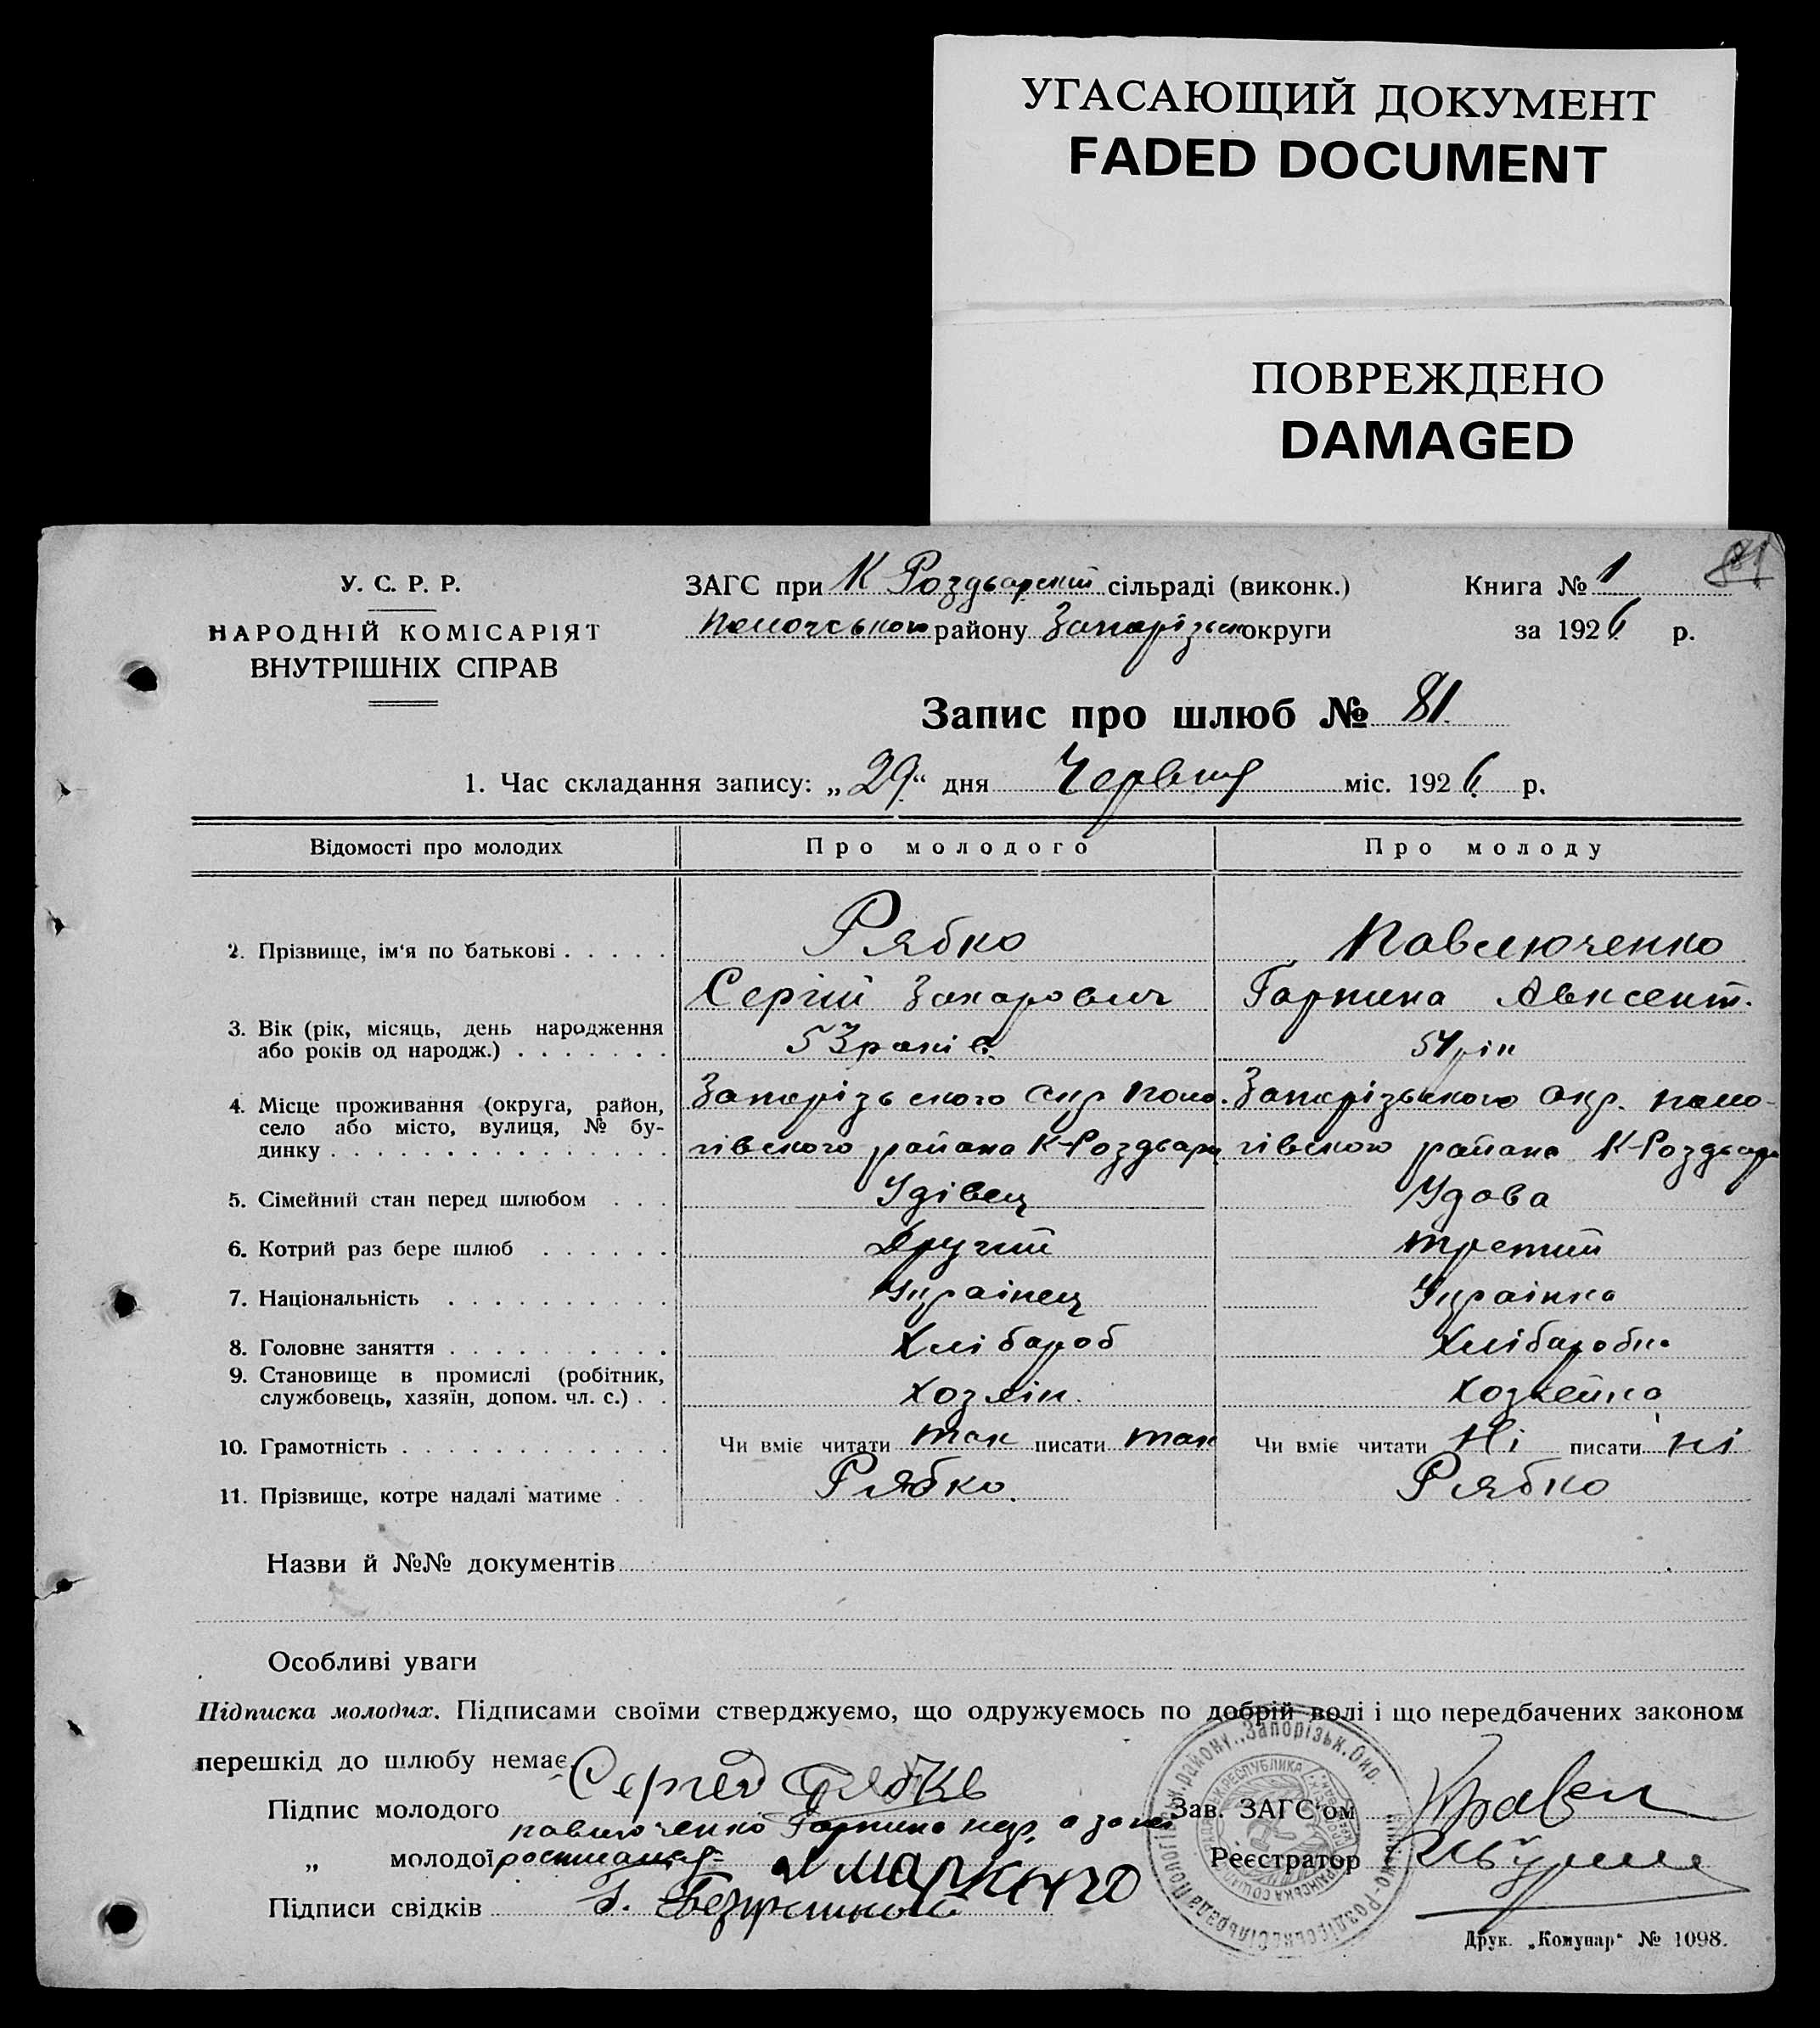 УГАСАЮЩИЙ ДОКУМЕНТ
FADED DOCUMENT
ПОВРЕЖДЕНО
DAMAGED
81
У. С. Р. Р.
НАРОДНІЙ КОМІСАРІЯТ
ВНУТРІШНІХ СПРАВ
ЗАГС при К Роздьорскій сільраді (виконк.)
района району Запорізьк округи
Книга № 1
за 1926 р.
Запис про шлюб № 81.
1. Час складання запису: „29“ дня Червня міс. 1926 р.
Відомості про молодих Про молодого Про молоду
2. Прізвище, ім'я по батькові . . . . . Рябко Павлюченко
Сергій Захарович Гарпина Авксент.
3. Вік (рік, місяць, день народження
або років од народж.) . . . . . . . 53 років. 54 рік
4. Місце проживання (округа, район,
село або місто, вулиця, № бу-
динку . . . . . . . . . . . . . . .
Запорізьского Окр Поло- Запорізького Окр. Поло-
гівского района К-Роздьор гівского района К-Роздьор
5. Сімейний стан перед шлюбом . . . Удівец Удова
6. Котрий раз бере шлюб . . . . . . Другий третий
7. Національність . . . . . . . . . . Украінец Украінка
8. Головне заняття . . . . . . . . . . Хлібароб Хлібаробка
9. Становище в промислі (робітник,
службовець, хазяїн, допом. чл. с.) . . Хозяін. Хозяейка
10. Грамотність . . . . . . . . . . . . Чи вміє читати так писати так Чи вміє читати Ні писати ні
11. Прізвище, котре надалі матиме . . Рябко. Рябко
Назви й №№ документів
Особливі уваги
Підписка молодих. Підписами своїми стверджуємо, що одружуємось по добрій волі і що передбачених законом
перешкід до шлюбу немає.
Підпис молодого Сергей Рябко
Зав. ЗАГС'ом
Павлюченко Гарпина нгр. а за неї
„ молодої росписався
Марченко
Реєстратор
Підписи свідків
Друк. „Комунар“ № 1098.